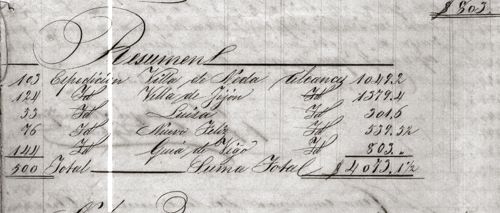 $ 803
Resumen
103 Expedicion Villa de Noda Alcance 1049.2
124 Id Villa de Jijón Id 1379.4
53 Id Luisa Id 301.6
76 Id Nuevo Feliz Id 539.3½
144 Id Guia de Vigo Id 803.
500 Total Suma Total $ 4073.1½